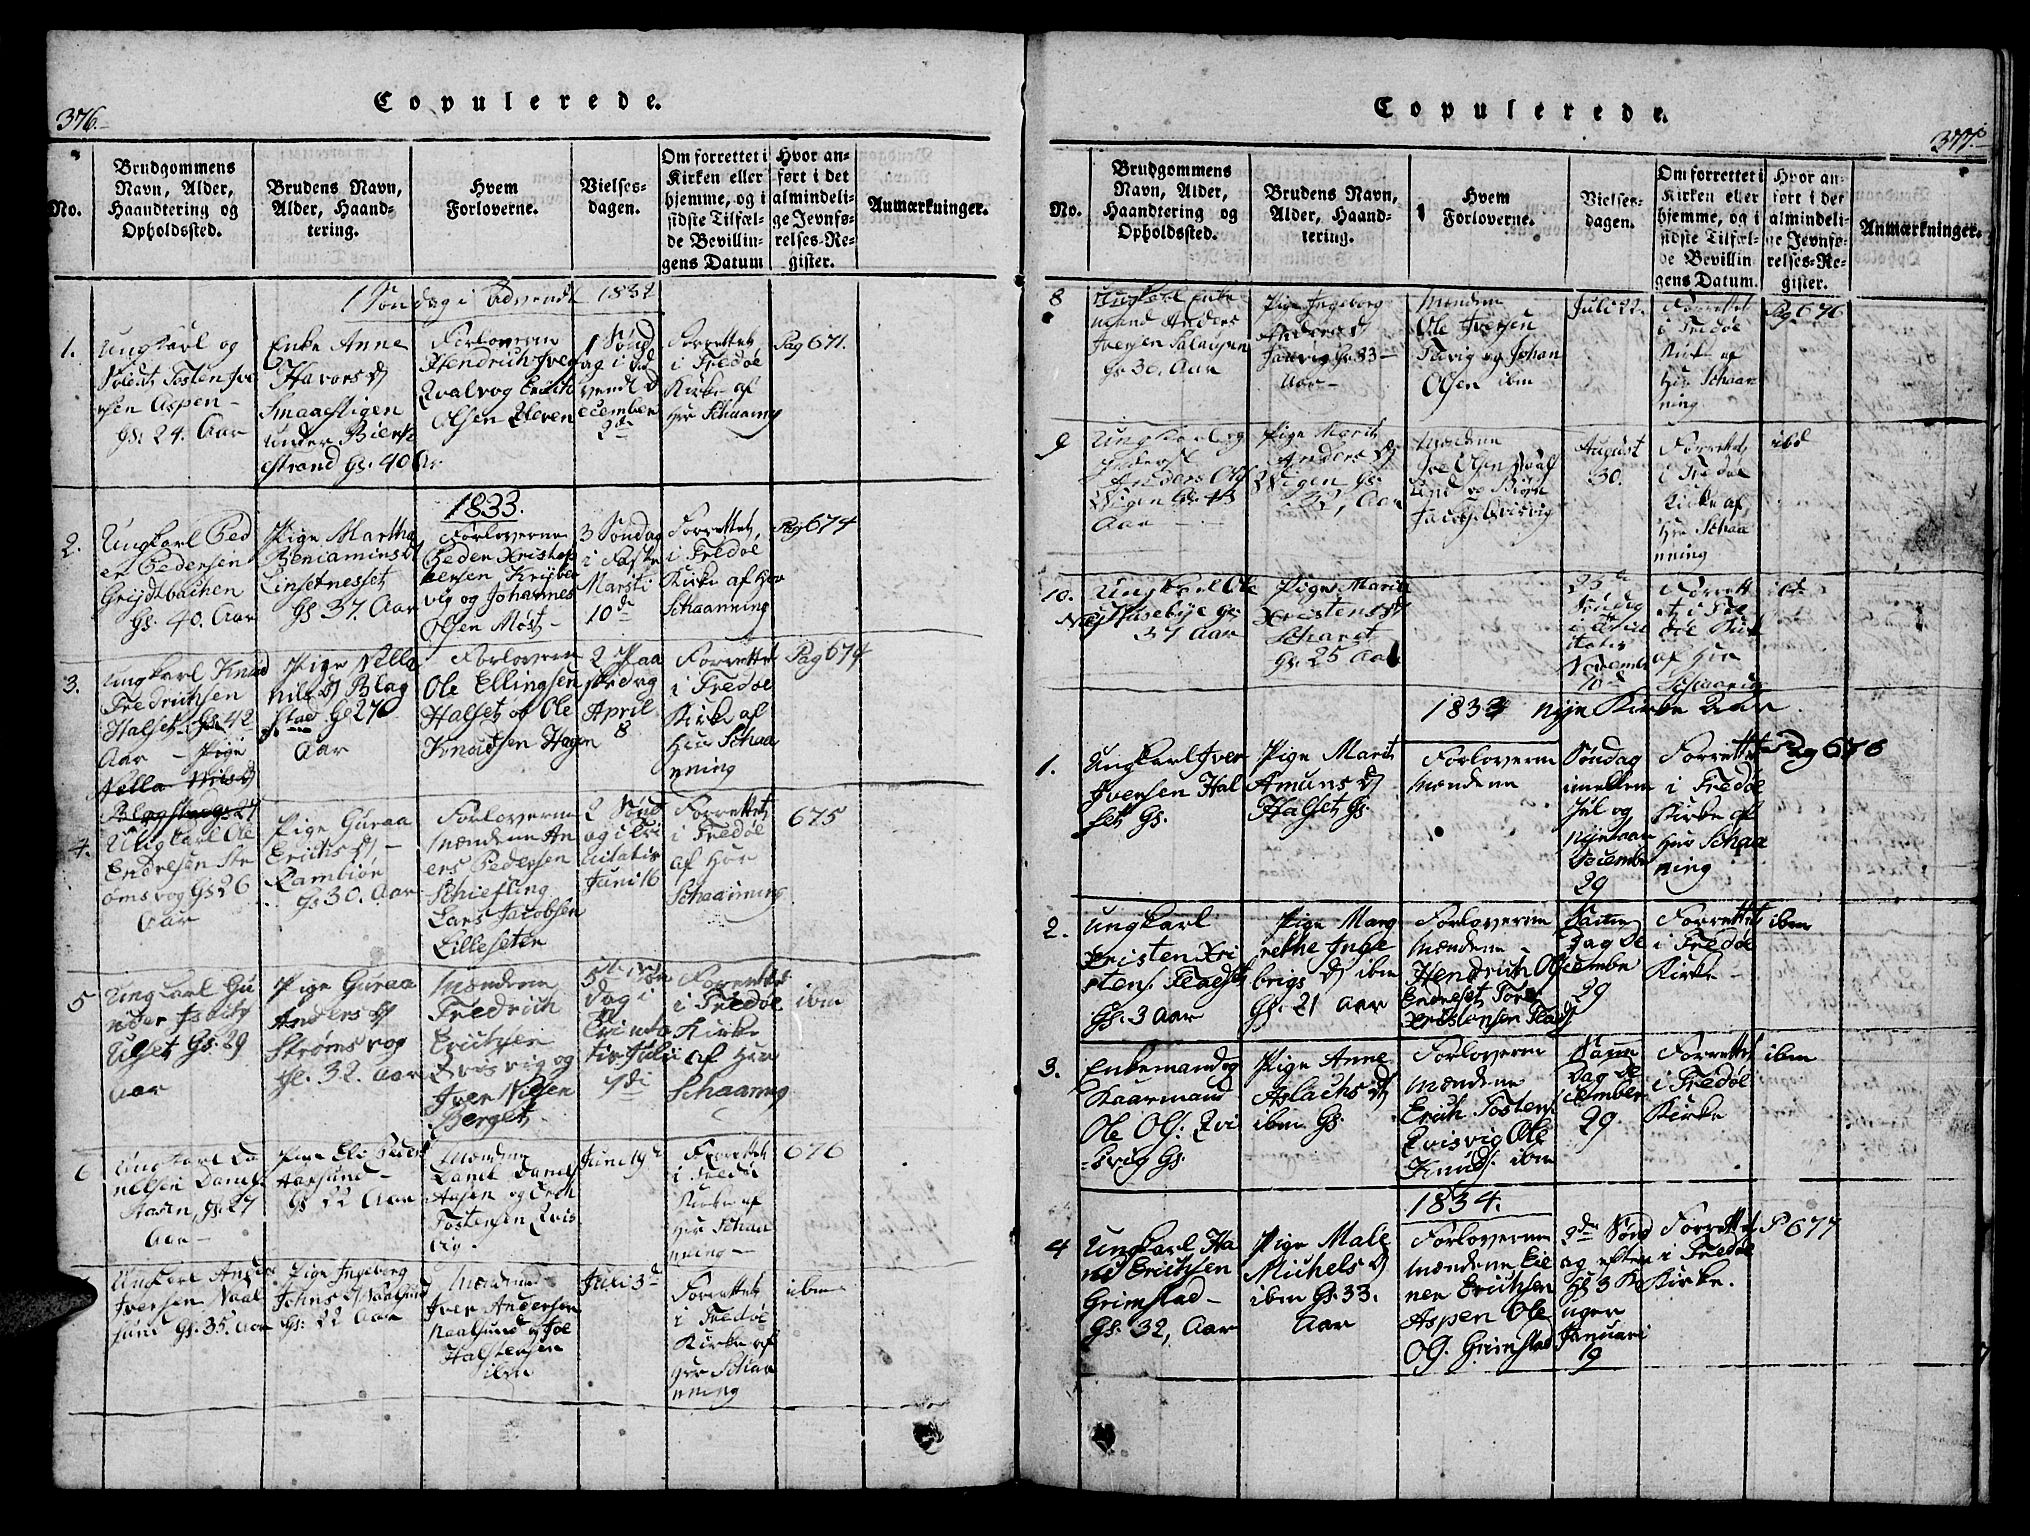 376.
Copulerede.
No.
Brudgommens
Navn, Alder,
Haandtering og
Opholdssted.
Brudens Navn,
Alder, Haand-
tering.
Hvem
Forloverne.
Vielses-
dagen.
Om forrettet i
Kirken eller
hjemme, og i
sidste Tilfæl-
de Bevillin-
gens Datum
Hvor an-
ført i det
almindeli-
ge Jevnfø-
relses-Re-
gister.
Anmærkninger.
1 Søndag i Advendt 1832
1.
Ungkarl og
Soldat Tosten Ive
rsen Aspen
Gs: 24. Aar
Enke Anne
Havors D
Smaaestigen
under Biern
estrand Gs. 40 Ar
Forloverne
Hendrich Iver
Olsen
1 Sønd
ag i Ad
vendt D
ecember
2de
Forrettet
i Fredøe
Kirke af
Hrr Schaaning
Pag 671.
1833.
2.
Ungkarl Ped
er Pedersen
Greijdtbachen
Gs. 40. Aar
Pige Martha
Beniamins D
Einsetnesset
Gs 37. Aar
Forloverne
Peder Kristof
fersen
vig og Johannes
Olsen Møst
3 Søndag
i Faste
Marsti
10de
Forrettet,
i Fredøe
Kirke af Hrr
Schaanning
Pag 674
3.
Ungkarl Knud
Fredrichsen
Halset Gs. 42
Aar - Pige
Nella Nils D
Pige Nella
Nils D Blag
stad Gs 27
Aar
Forloverne
Ole Ellingsen
Halset og Ole
Knudsen Hagen
2 Paa
skedag
April
8
Forrettet
i Fredøe
Kirke af
Hrr Schaa
nning
Pag 674
4.
Ungkarl Ole
Endresen Str
ømsvog Gs 26
Aar
Pige Guraa
Erichs D
Rambiør
Gs 30. Aar
Forloverne
Mændene An
ers Pedersen
Schiefling
Lars Jacobsen
Lilleseten
2 Sønd
ag i Tri
nitatis
Juni 16
Forrettet
i Fredøe
af Hrr
Schaanning
675
5
Ungkarl Gu
nder
Ulset Gs: 29
Aar
Pige Guraa
Anders D
Strømsvog
Gs. 32. Aar
Mændene
Fredrich
Erichsen
Qvisvig og
Iver Nilsen
Berget
dag i
Trinita
tis Juli
Forrettet
i Fredøe
Kirke
af Hrr
Schaaning
ibm
6
Ungkarl Da
nielsen Daniels
Aasen, Gs. 27
Aar
Pige Eli Peders
Aarsund
Gs 22 Aar
Mændene
Daniels
Aasen og Erich
Tostensen Qvis
vig.
Juni 19d
Forrettet
i Fredøe
Kirke af
Hrr Schaa
nning
676
7
Ungkarl Anders
Iversen Naal
sund Gs. 35. Aar
Pige Ingeborg
Johns D Naalsund
Gs: 22 Aar
Mændene
Iver Andersen
Naalsund og Joe
Halstensen
ibm
Juli 3d
Forrettet
i Fredøe
Kirke af
Hrr Schaa
nning
ibm
Copulerede.
377.
No.
Brudgommens
Navn, Alder,
Haandtering og
Opholdssted.
Brudens Navn,
Alder, Haand-
tering.
Hvem
Forloverne.
Vielses-
dagen.
Om forrettet i
Kirken eller
hjemme, og i
sidste Tilfæl-
de Bevillin-
gens Datum.
Hvor an-
ført i det
almindeli-
ge Jevnfø-
relses-Re-
gister.
Anmærkninger.
8
Ungkarl Enke
mand Anders
Iversen
Gs 30. Aar
Pige Ingeborg
Anders D
Gs 33
Aar
Mændene
Ole Iversen
og Johan
Olsen ibm
Juli 22.
Forrettet
i Fredøe
Kirke af
Hrr Schaan
ning
Pag 676
9
Ungkarl og
Anders Ols
Vigen Gs: 43
Aar
Pige Marit
Anders D
Vigen Gs.
42, Aar
Mændene
Ole Olsen
August
30.
Forrettet
i Fredøe
Kirke af,
Hrr Schaa
nning
ibd
10.
Ungkarl Ole
Husebÿe Gs:
37 Aar
Pige Marit
Kristens D
Gs. 25 Aar
Novemb
10d
Forrett
et i Fre
døe Kirk
af Hrr
Schaaning
ibd
1833 nyje Kirke Aar
1.
Ungkarl Iver
Iversen Hal
set Gs.
Pige Marit
Amuns D
Halset Gs.
Forloverne
Mændene
Søndag
imellem
Jul og
Nyeaar
December
29
Forrettet
i Fredøe
Kirke af
Hrr Schaa
ning
Pag 676
2.
Ungkarl
Kristen Kri
stens.
Gs. 3 Aar
Pige Marg
rethe Inge
brigs D ibm
Gs. 21 Aar
Forloverne
Mændene
Hendrich Ols
Endreset Tore
Kristensen
Samme
Dag De
cembe
29
Forrettet
i Fredøe
Kirke
ibm
3.
Enkemand og
Kaarmand
Ole Ols: Qvi
svig Gs.
Pige Anne
Aslachs D
ibm Gs.
Forloverne
Mændene
Erich Tosten.
Qvisvig Ole
Knuds. ibm
Samme
Dag De
cember
29.
Forrettet
i Fredøe
Kirke
ibm
1834.
4
Ungkarl Ha
ns Erichsen
Grimstad
Gs. 32, Aar
Pige Male
Michels D
ibm Gs. 33.
Aar
Forloverne
Mændene Ei
ner Erichsen
Aspen Ole
Ols. Grimstad
2den Sønd
ag efter
Hl 3 Ko
nger
Januari
19
Forrettet
i Fredøe
Kirke.
P 677